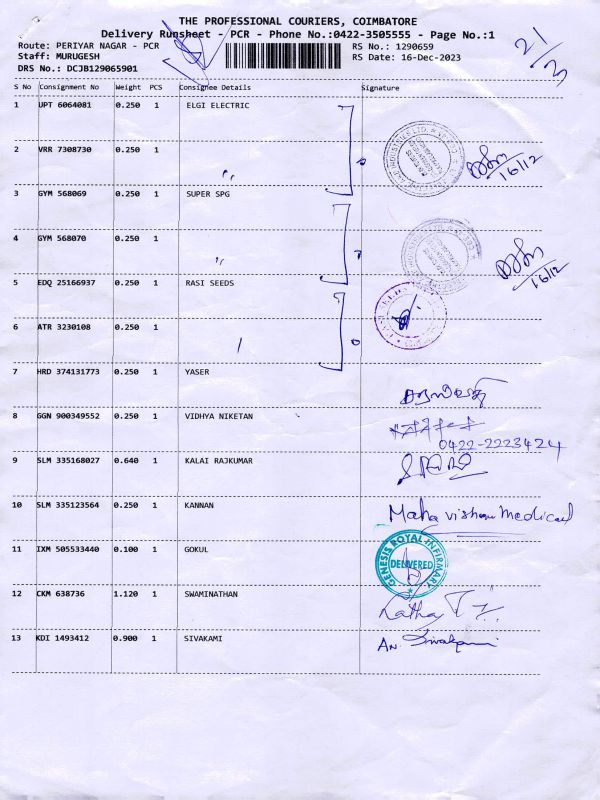 THE PROFESSIONAL COURIERS, COIMBATORE
Delivery Runsheet - PCR - Phone No.:0422-3505555 - Page No.:1
Route: PERIYAR NAGAR - PCR
RS No.: 1290659
Staff: MURUGESH
RS Date: 16-Dec-2023
DRS No.: DCJB129065901
21/3
S No Consignment No Weight PCS Consignee Details Signature
1 UPT 6064081 0.250 1 ELGI ELECTRIC
2 VRR 7308730 0.250 1 〃
16/12
3 GYM 568069 0.250 1 SUPER SPG
4 GYM 568070 0.250 1 〃
16/12
5 EDQ 25166937 0.250 1 RASI SEEDS
6 ATR 3230108 0.250 1
7 HRD 374131773 0.250 1 YASER
8 GGN 900349552 0.250 1 VIDHYA NIKETAN
0422-2223424
9 SLM 335168027 0.640 1 KALAI RAJKUMAR
10 SLM 335123564 0.250 1 KANNAN Maha vishnu medical
11 IXM 505533440 0.100 1 GOKUL
GENESIS ROYAL INFIRMARY
DELIVERED
12 CKM 638736 1.120 1 SWAMINATHAN
13 KDI 1493412 0.900 1 SIVAKAMI AN. Sivakami